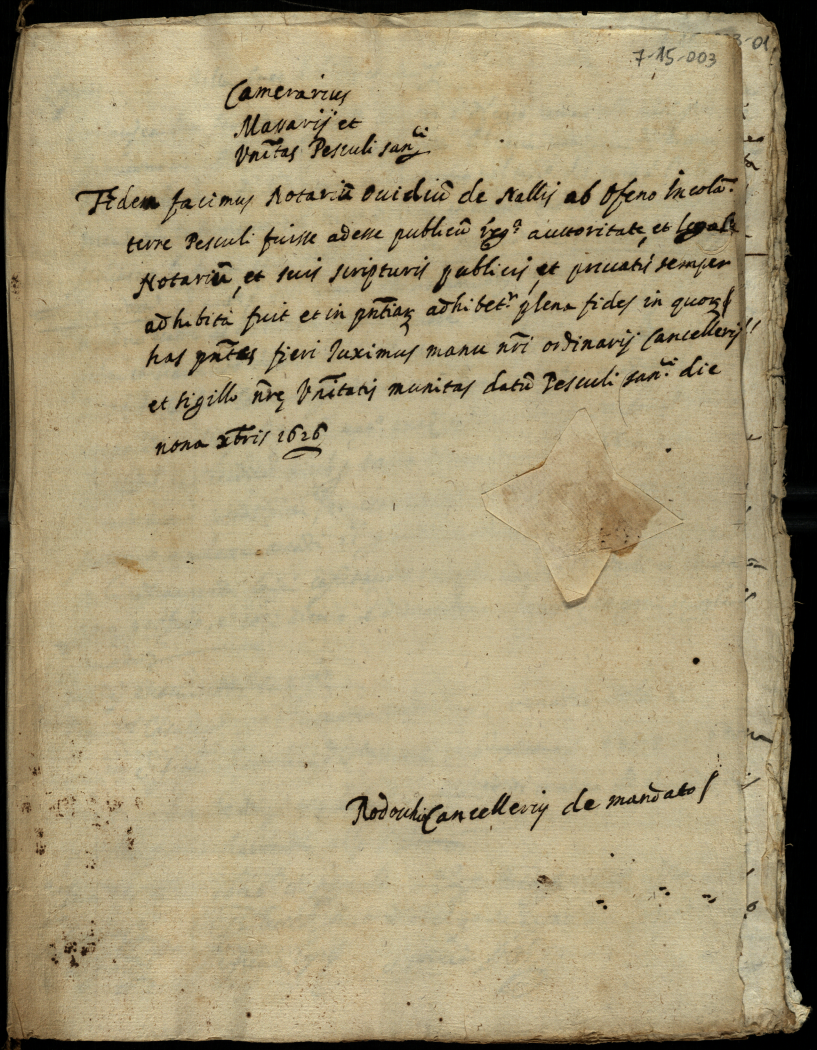 7-15-003
Camerarius
Massarij et
Vnitas Pesculi san.ci
Fidem facimus Notariũ Ouidiũ de Nallis ab Ofeno Incolã
terre Pesculi fuisse ad esse publicũ reg.a auctoritate, et legale
Notariũ, et suis scripturis publicis, et priuatis semper
adhibita fuit et in pñtiaȝ adhibet.r plena fides in quoȝ
has pñtes fieri iuximus manu ñri ordinarij Cancellerij
et sigillo ñrę Vnĩtatis munitas datũ Pesculi san.ci die
nona xbris 1626
Cancellerij de mandato